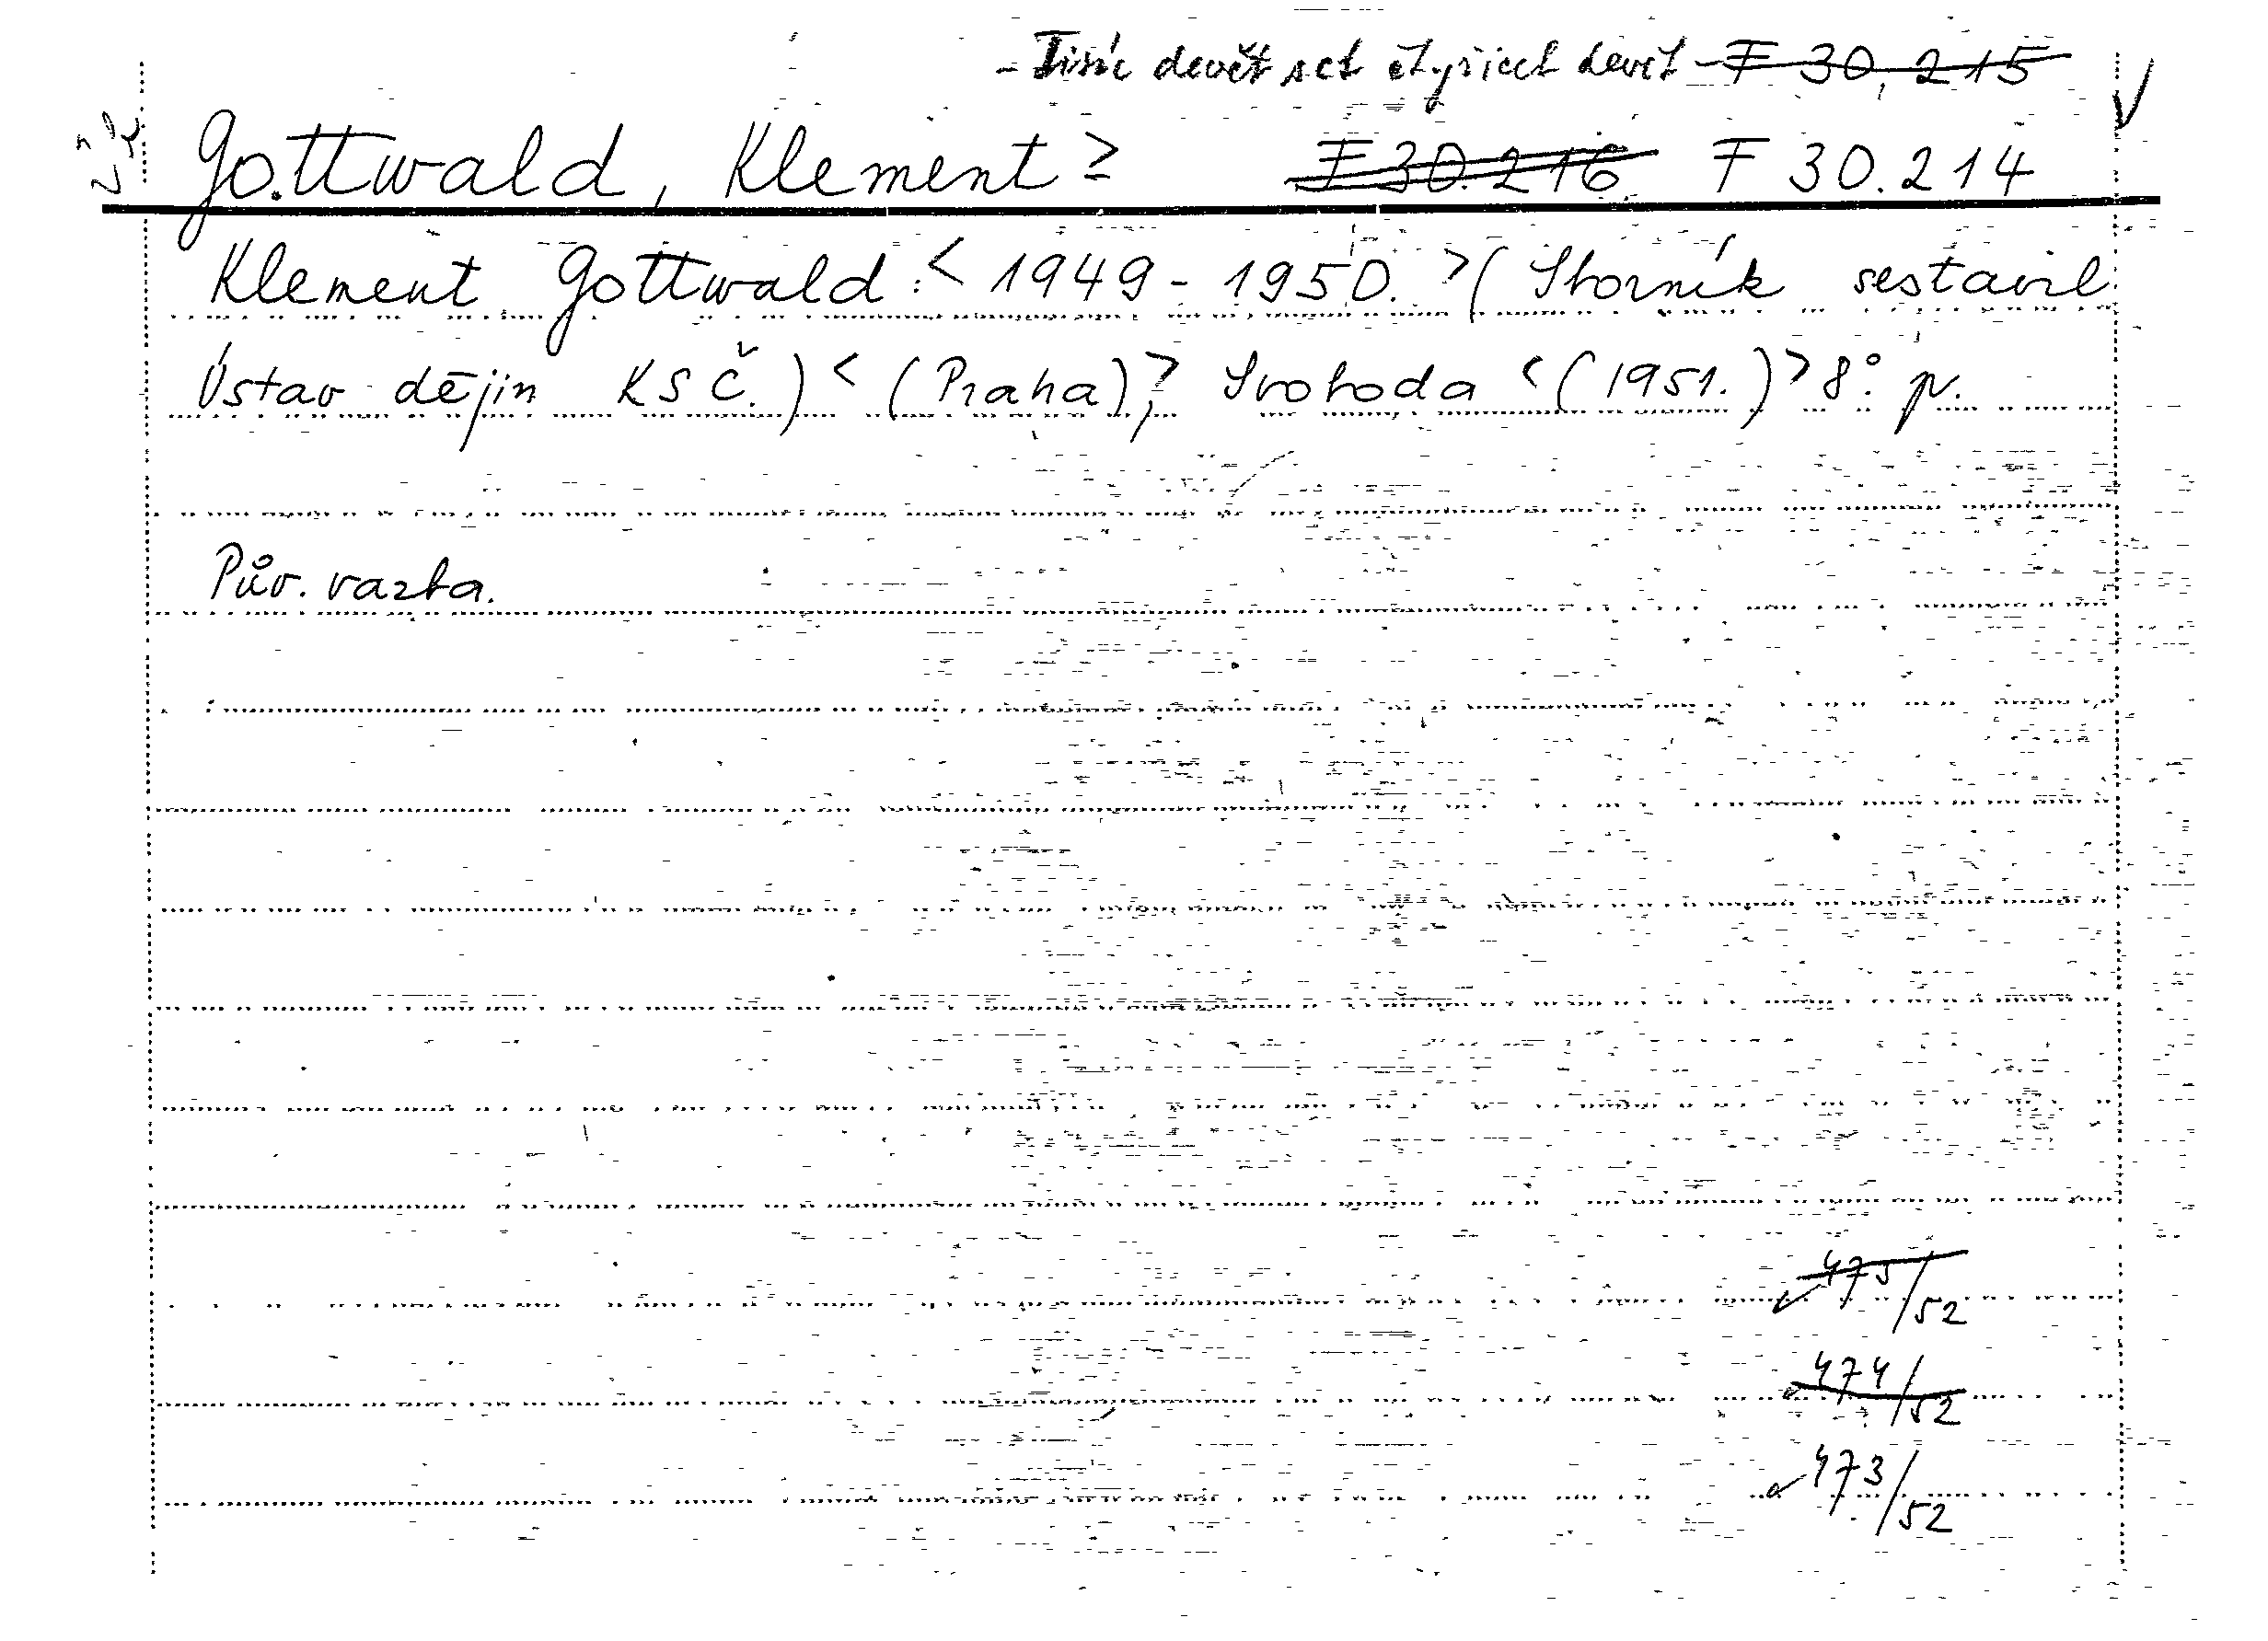 - Tisíc devět set čtyřicet devět - F 30.215
Gottwald, Klement > F 30.216 F 30.214
Klement Gottwald : < 1949 - 1950. > (Sborník sestavil
Ústav dějin KSČ.) < (Praha), > Svoboda < (1951.) > 8° p.
Pův. vazba.
475/52
474/52
473/52